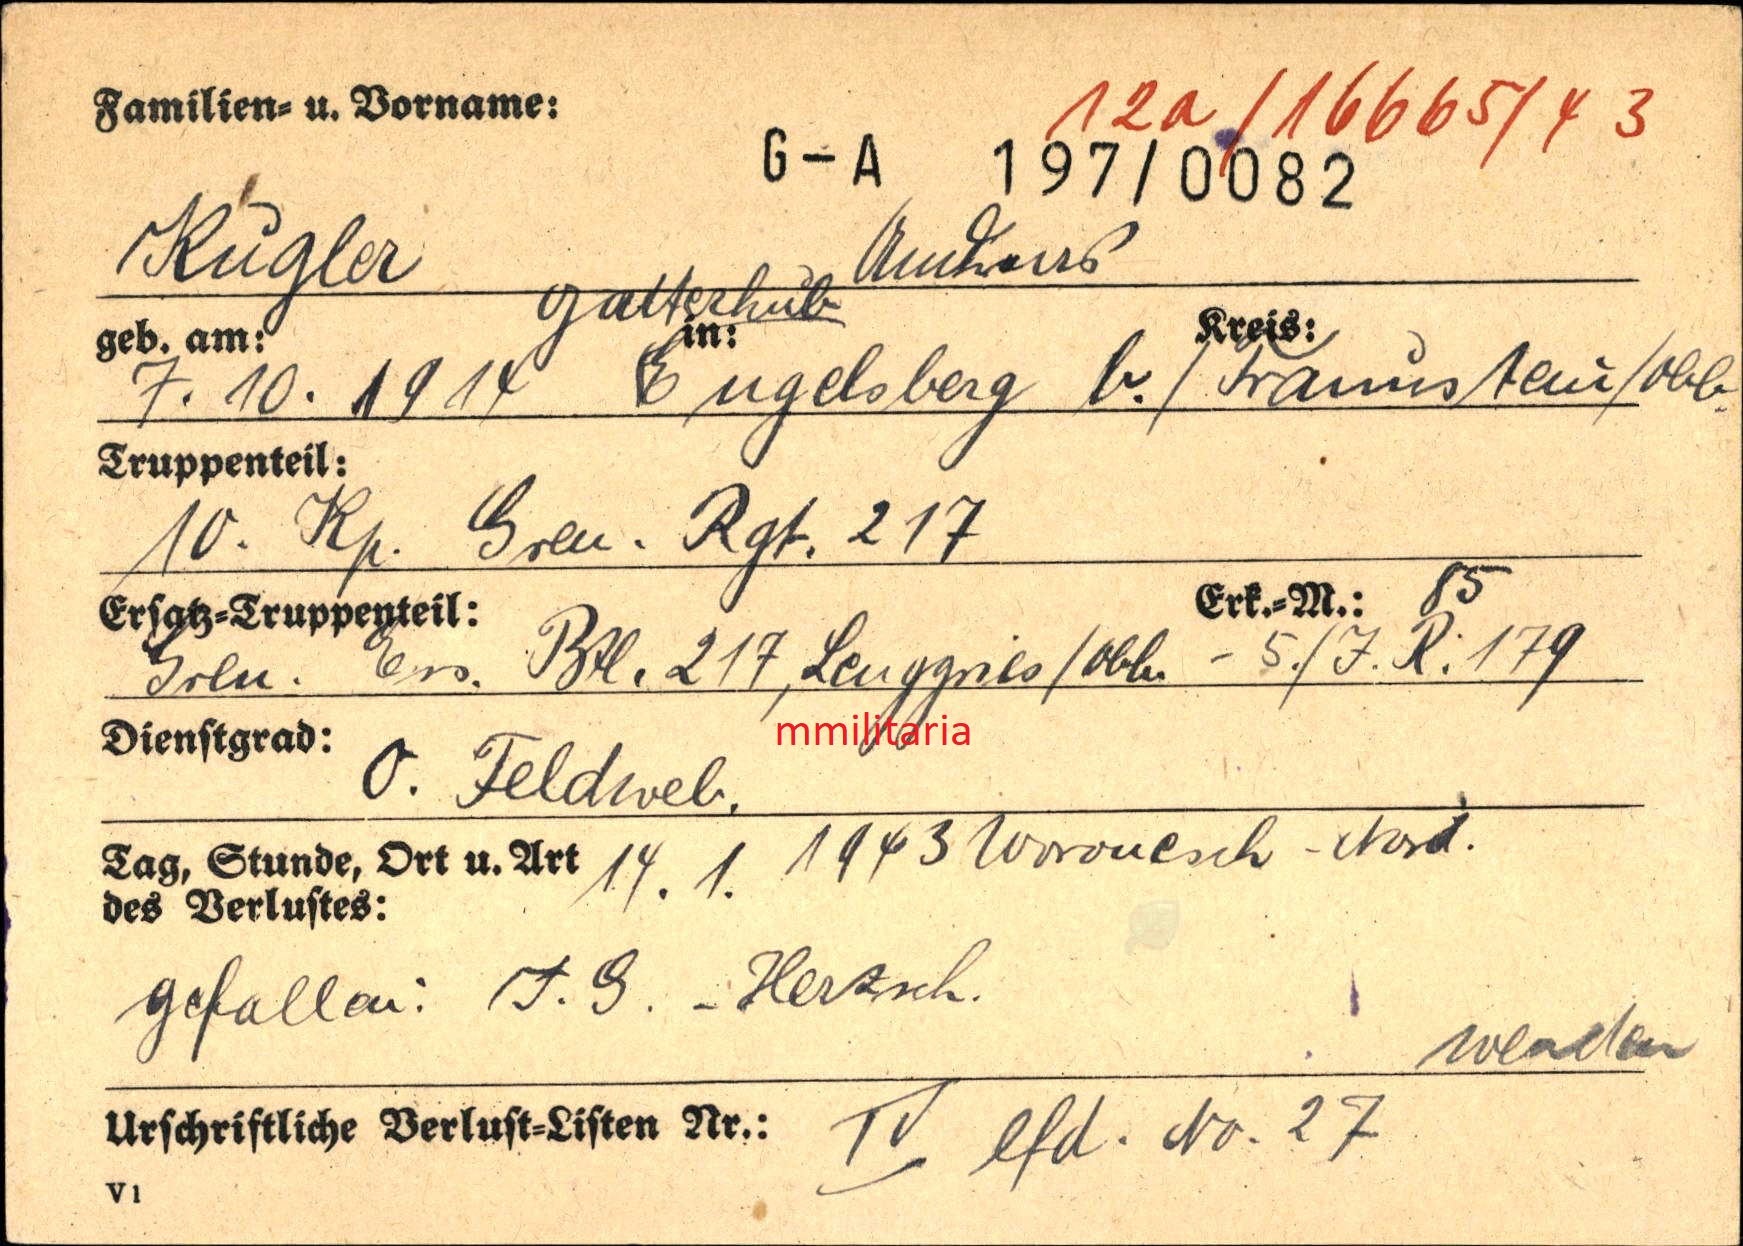 Familien- u. Vorname:
12a/16665/43
G-A 197/0082
Kugler Andreas
Gatterhub
geb. am: in: Kreis:
7. 10. 1914 Engelsberg b./Traunstein/Obb.
Truppenteil:
10. Kp. Gren. Rgt. 217
Ersatz-Truppenteil: Erk.-M.: 85
Gren. Ers. Btl. 217, Lenggries/Obb. - 5./J. R. 179
mmilitaria
Dienstgrad: O. Feldweb.
Tag, Stunde, Ort u. Art 14. 1. 1943 Woronesch - Nord.
des Verlustes:
gefallen: J. G. - Herzsch.
wenden
Urschriftliche Verlust-Listen Nr.: IV lfd. No. 27
V1